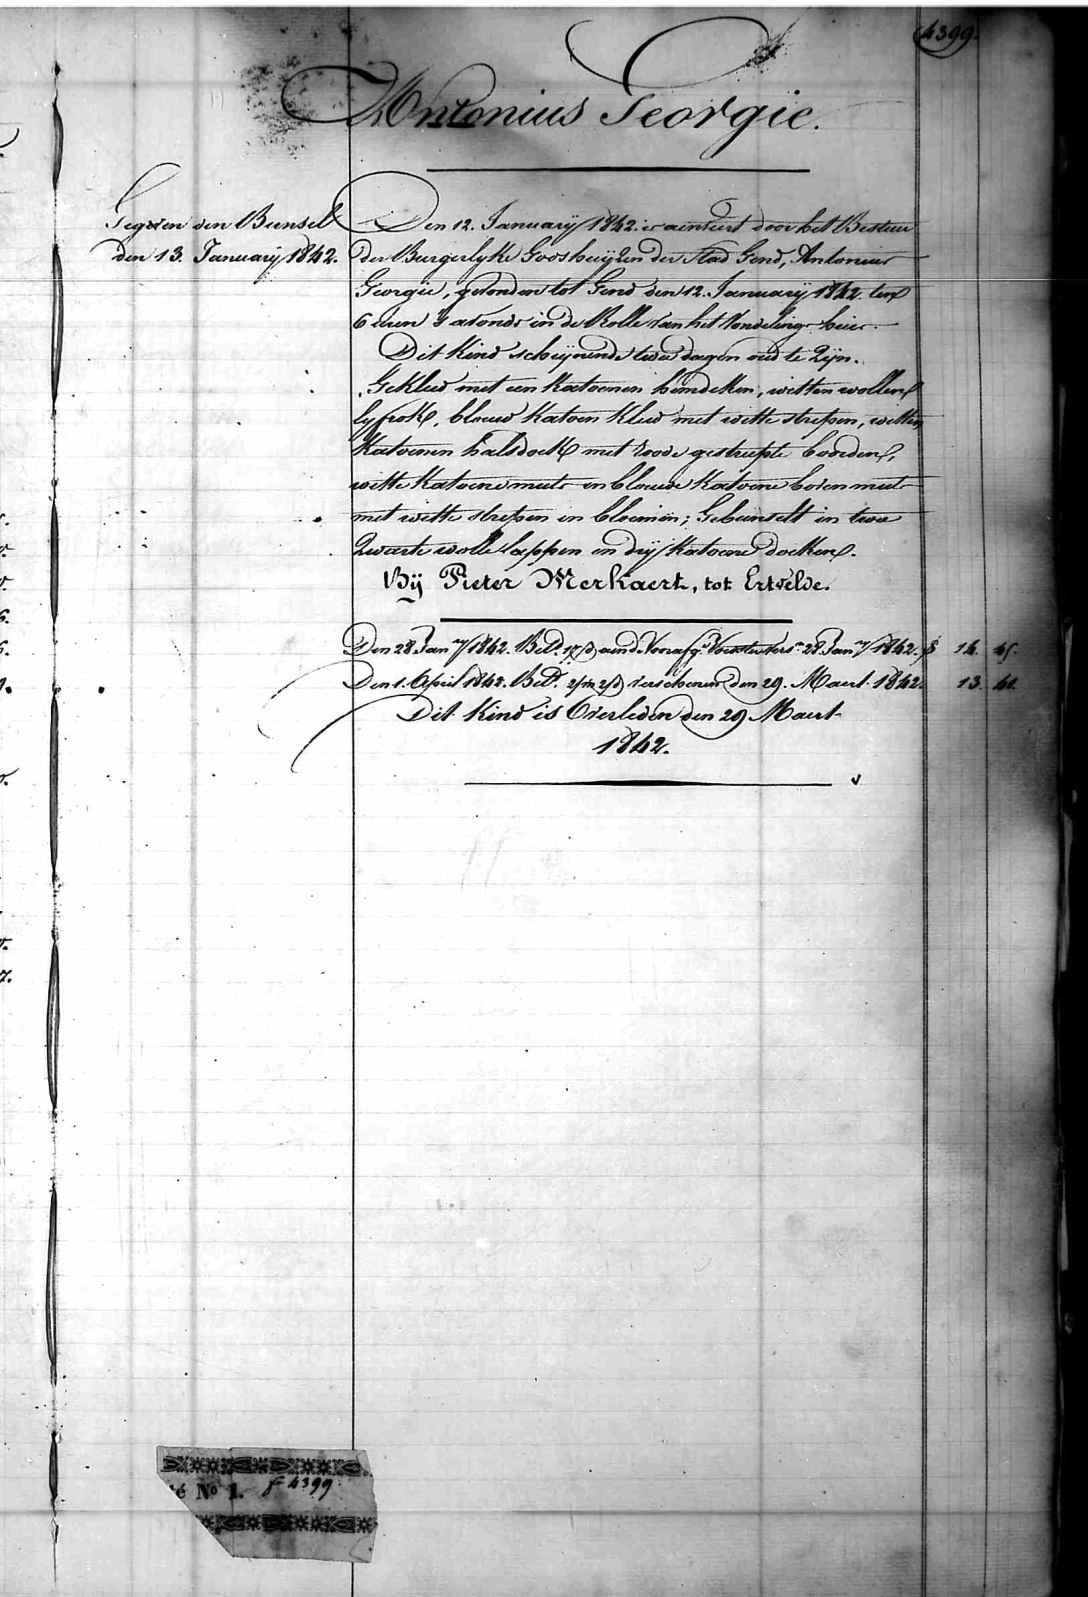 4399.
Antonius Georgie.
Gegeven den Bunsel
den 13. January 1842.
Den 12. January 1842 is aenveert door het Bestuer
der Burgerlyke Godshuijzen der Stad Gend, Antonius
Georgie, gevonden tot Gend den 12. January 1842 ten
6 uren 's avonds in de Rolle van het Vondeling huis.
Dit Kind schijnende twee dagen oud te Zijn.
Gekleed met een Katoenen hemdeken, witten wollen
lyfrok, blauw Katoen Kleed met witte strepen, witten
Katoenen halsdoek met roode gestreepte boorden,
witte Katoene muts en blauwe Katoene boven muts
met witte strepen en bloemen; Gebunselt in twee
Zwarte wolle lappen en drij Katoene doeken.
Bij Pieter Merkaert, tot Ertvelde.
Den 28 Jan.ry 1842. Bet.d 28 Jan.ry 1842. 14. 45.
Den 1. April 1842. Bet.d verschenen den 29. Maert 1842. 13.
Dit Kind is Overleden den 29 Maert
1842.
té No 1. f 4399